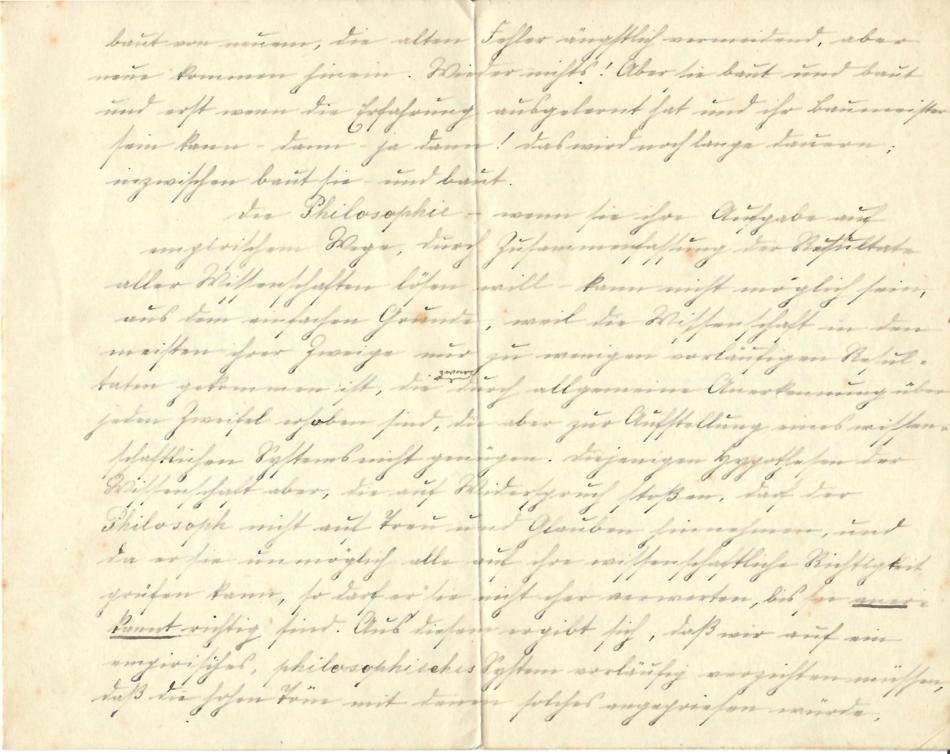 baut von neuem, die alten Fehler ängstlich vermeidend, aber
neue kommen hinein. Wieder nichts! Aber sie baut und baut
und erst wenn die Erfahrung ausgelernt hat und ihr Baumeister
sein kann - dann - ja dann! Das wird noch lange dauern;
inzwischen baut sie - und baut.
Die Philosophie - wenn sie ihre Aufgabe auf
empirischem Wege, durch Zusammenfassung der Resultate
aller Wissenschaften lösen will - kann nicht möglich sein,
aus dem einfachen Grunde, weil die Wissenschaft in den
meisten ihrer Zweige nur zu wenigen vorläufigen Resul-
zwar
taten gekommen ist, die durch allgemeine Anerkennung über
jeden Zweifel erhoben sind, die aber zur Aufstellung eines wissen-
schaftlichen Systems nicht genügen. Diejenigen Hypothesen der
Wissenschaft aber, die auf Widerspruch stoßen, darf der
Philosoph nicht auf Treu und Glauben hinnehmen, und
da er sie unmöglich alle auf ihre wissenschaftliche Richtigkeit
prüfen kann, so darf er sie nicht eher verwerten, bis sie aner-
kannt richtig sind. Aus diesem ergibt sich, daß wir auf ein
empirisches, philosophisches System vorläufig verzichten müssen,
daß die hohen Töne mit denen solches angepriesen würde,